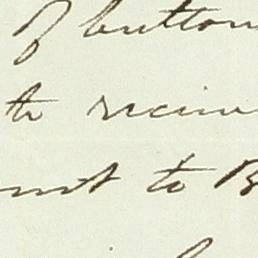 of button
to receive
not to B